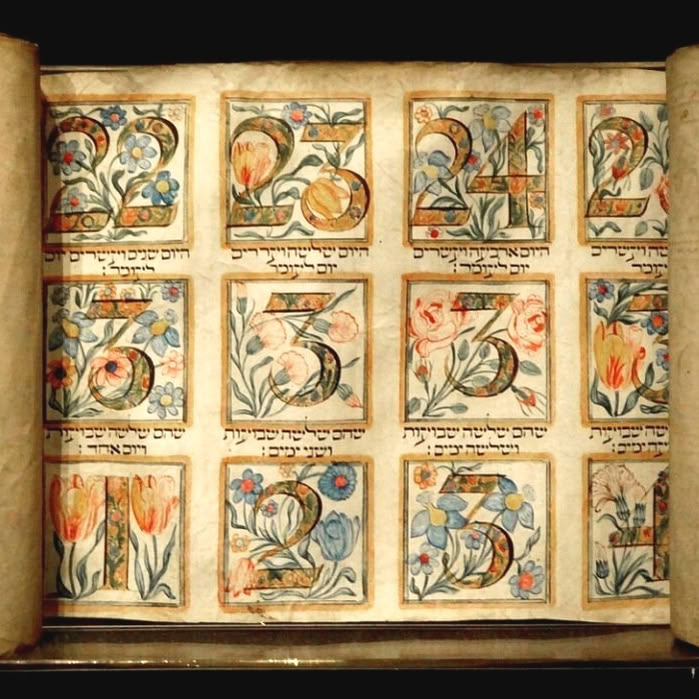 22
23
24
2
היום שנים ועשרים יום
לעומר :
היום שלשה ועשרים
יום לעומר
היום ארבעה ועשרים
יום לעומר :
ועשרים
לעומר
3
3
3
3
שהם שלשה שבועות
ויום אחד :
שהם שלשה שבועות
ושני ימים :
שהם שלשה שבועות
ושלשה ימים :
שבועות
ימים :
1
2
3